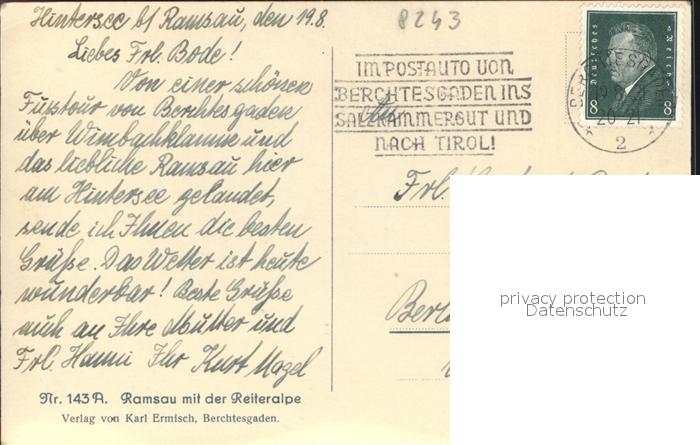 Hintersee b/ Ramsau, den 19.8.
8243
Liebes Frl. Bode!
Von einer schönen
Fußtour von Berchtesgaden
über Wimbachklamm und
das liebliche Ramsau hier
am Hintersee gelandet,
sende ich Ihnen die besten
Grüße. Das Wetter ist heute
wunderbar! Beste Grüße
auch an Ihre Mutter und
Frl. Hanni Ihr Kurt Magel
Nr. 143 A. Ramsau mit der Reiteralpe
Verlag von Karl Ermisch, Berchtesgaden.
IM POSTAUTO VON
BERCHTESGADEN INS
SALZKAMMERGUT UND
NACH TIROL!
Deutsches Reich
8 8
20-21
2
An
Frl.
Berl
privacy protection
Datenschutz